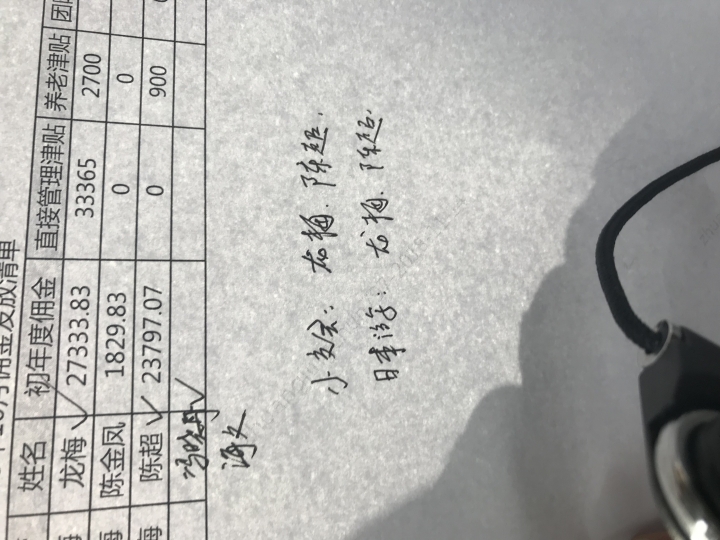 月佣金发放清单
姓名 初年度佣金 直接管理津贴 养老津贴 团
梅 龙梅 27333.83 33365 2700
梅 陈金凤 1829.83 0 0
梅 陈超 23797.07 0 900
冯晓丹
小交会: 龙梅、陈超.
日本游: 龙梅、陈超.